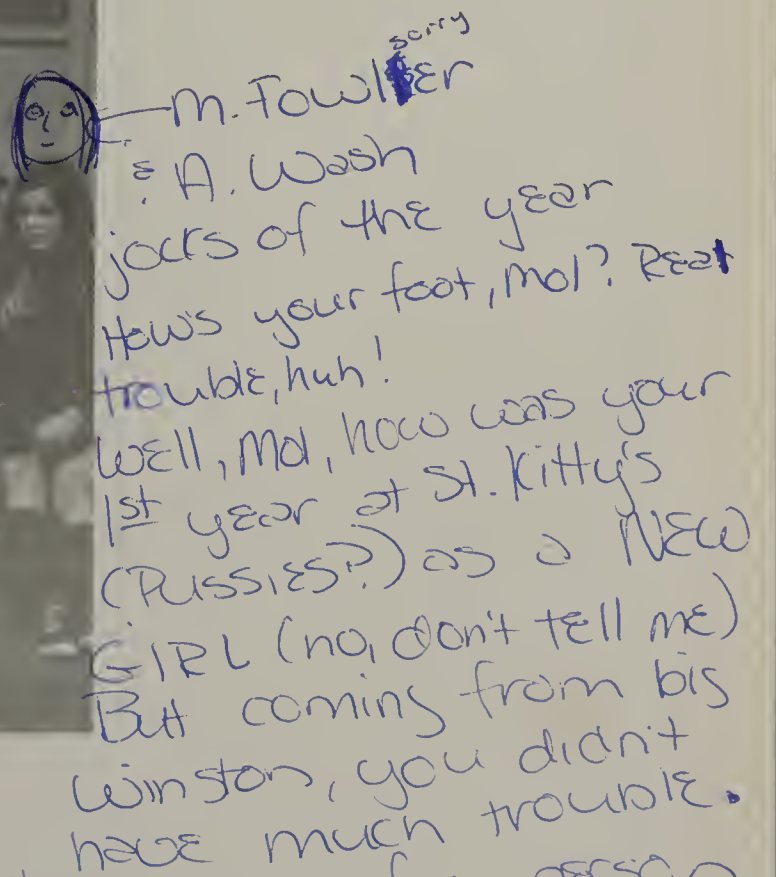 sorry
M. Fowler
& A. Wash
jocks of the year
How's your foot, Mol? Real
trouble, huh!
Well, Mol, how was your
1st year at St. Kitty's
(Pussies?) as a NEW
GIRL (no, don't tell me)
But coming from big
Winston, you didn't
have much trouble.
person